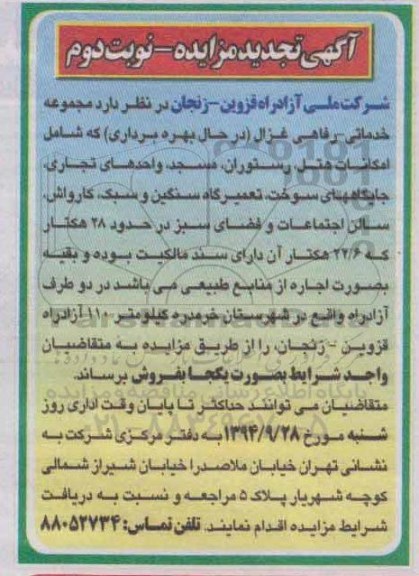 آگهی تجدید مزایده - نوبت دوم
شرکت ملی آزادراه قزوین - زنجان در نظر دارد مجموعه
خدماتی - رفاهی غزال (در حال بهره برداری) که شامل
امکانات هتل، رستوران، مسجد، واحدهای تجاری،
جایگاههای سوخت، تعمیرگاه سنگین و سبک، کارواش،
سالن اجتماعات و فضای سبز در حدود ۲۸ هکتار
که ۲۲/۶ هکتار آن دارای سند مالکیت بوده و بقیه
بصورت اجاره از منابع طبیعی می باشد در دو طرف
آزادراه واقع در شهرستان خرمدره کیلومتر ۱۱۰ آزادراه
قزوین - زنجان، را از طریق مزایده به متقاضیان
واجد شرایط بصورت یکجا بفروش برساند.
متقاضیان می توانند حداکثر تا پایان وقت اداری روز
شنبه مورخ ۱۳۹۴/۹/۲۸ به دفتر مرکزی شرکت به
نشانی تهران خیابان ملاصدرا خیابان شیراز شمالی
کوچه شهریار پلاک ۵ مراجعه و نسبت به دریافت
شرایط مزایده اقدام نمایند. تلفن تماس: ۸۸۰۵۲۷۳۴